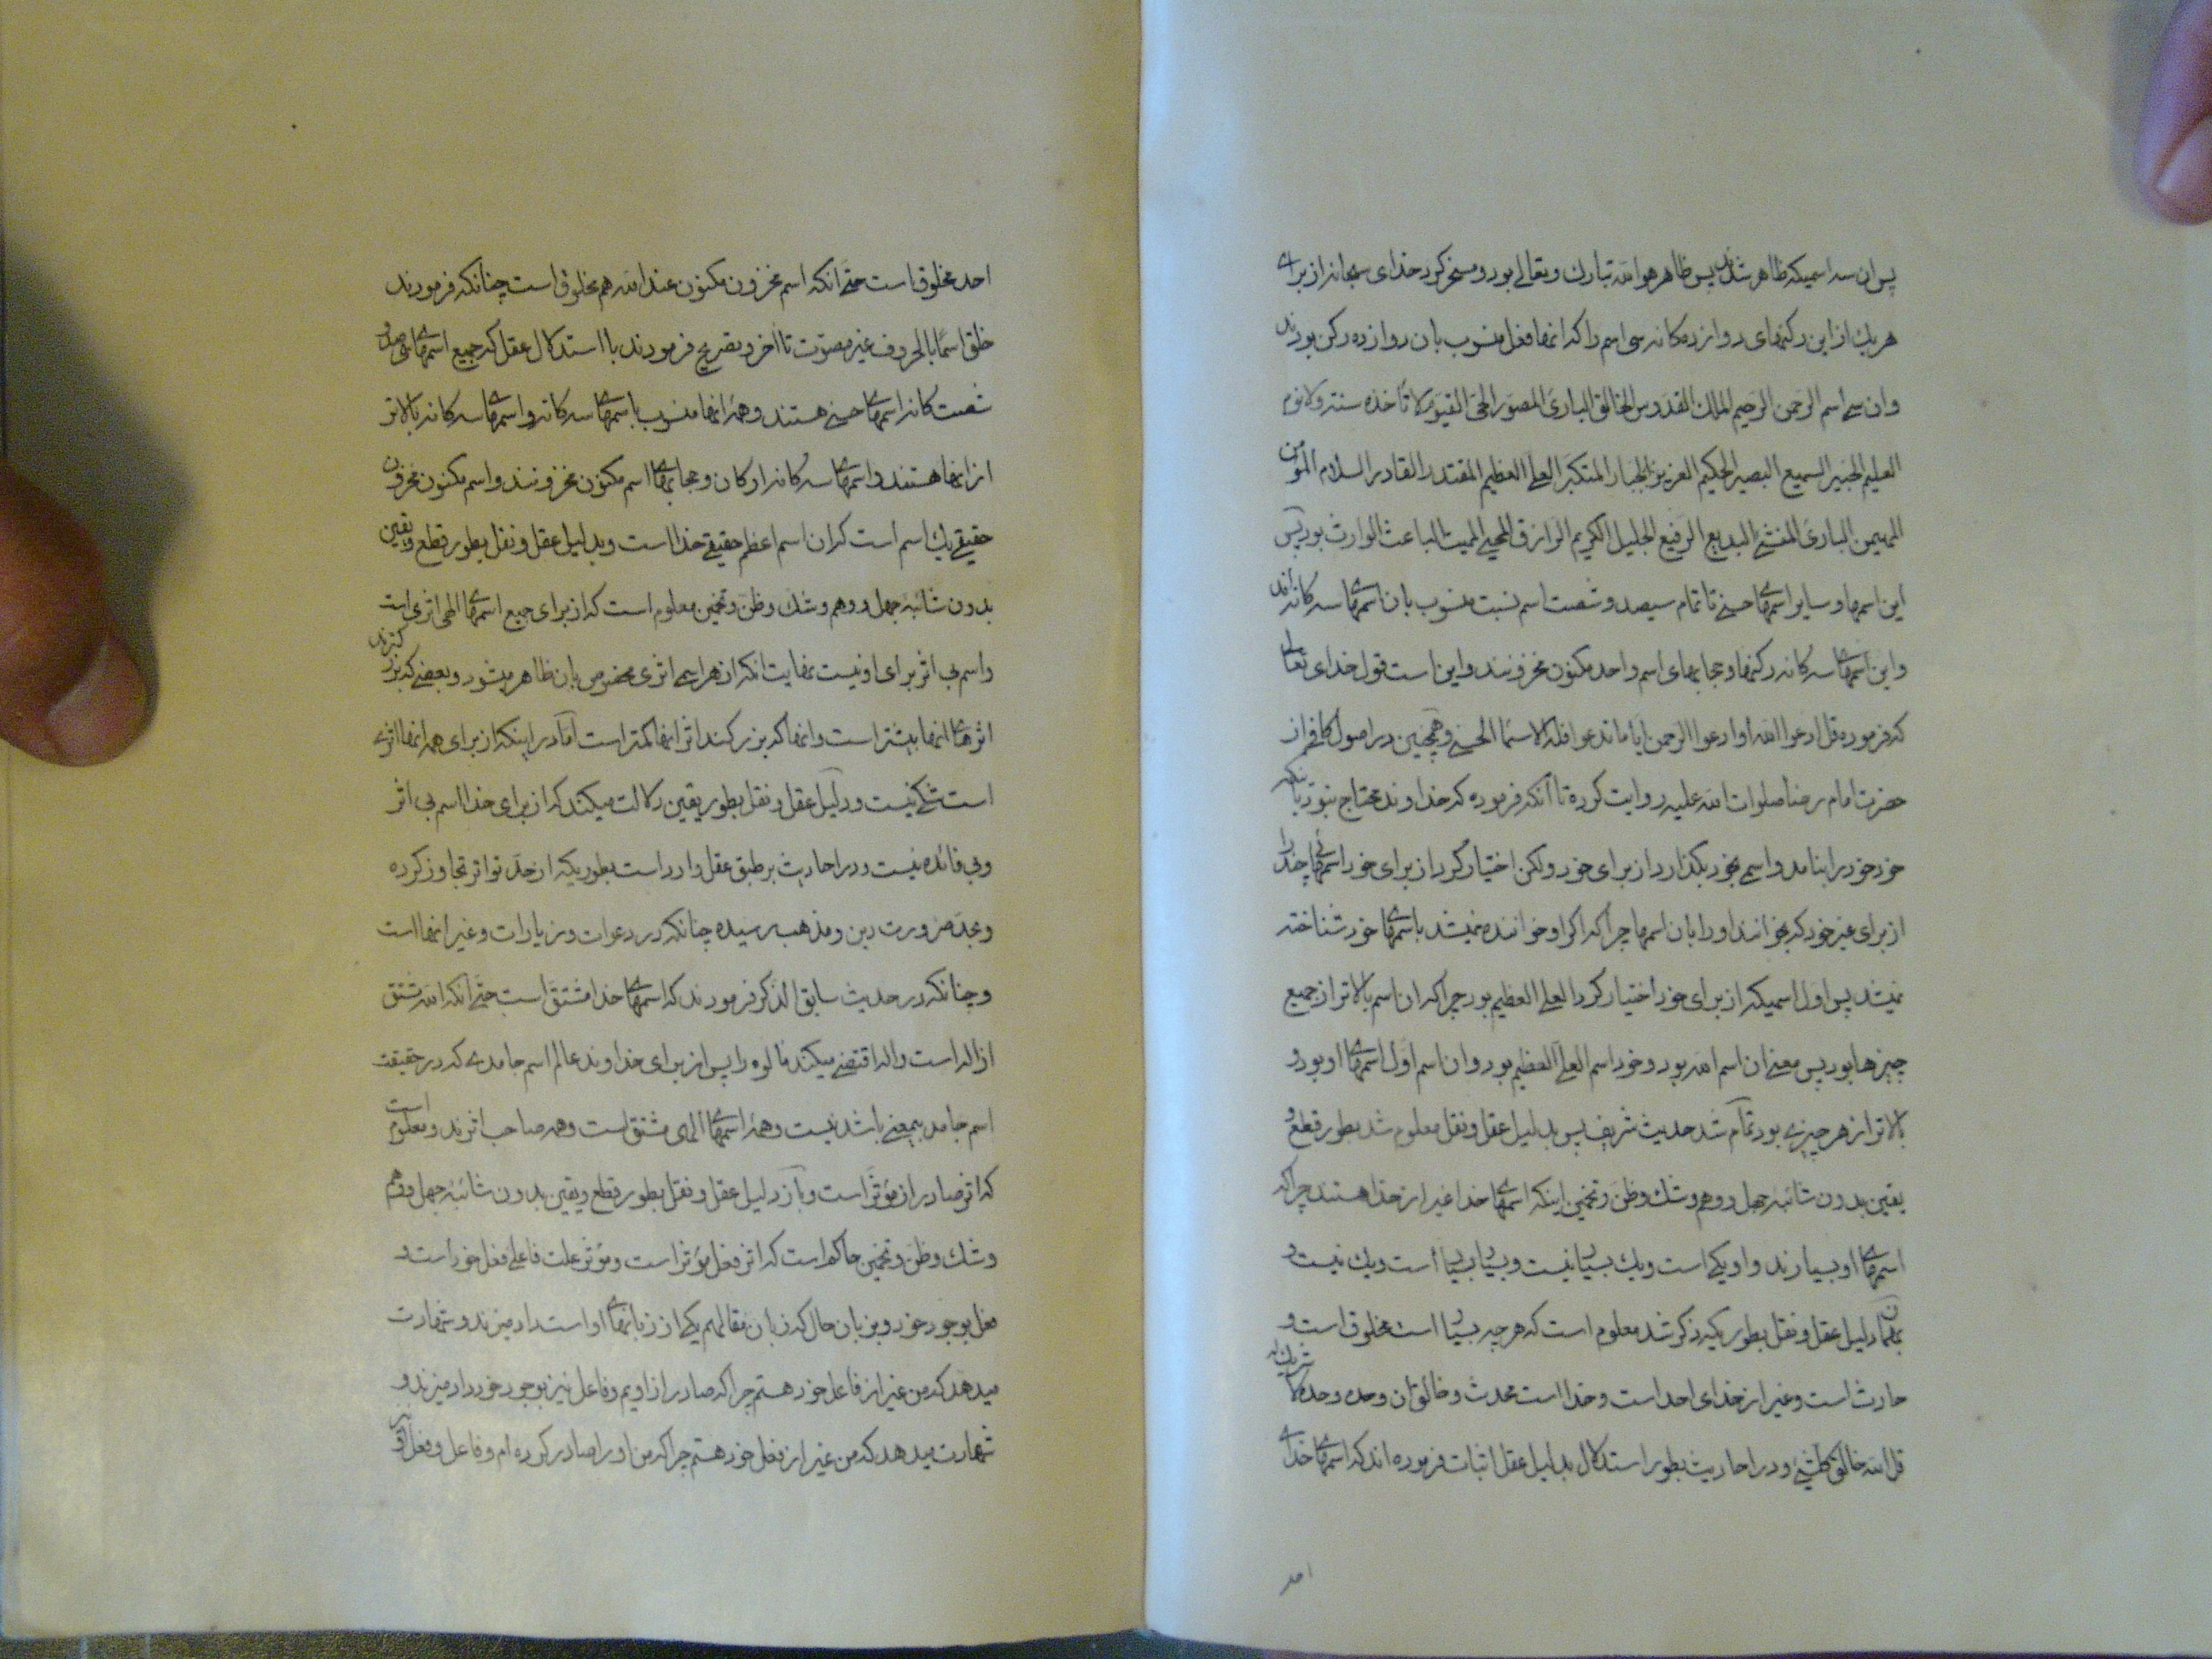 پس ان سه اسمیکه ظاهر شدند پس ظاهر هو الله تبارک و تعالی بود و مسخر کرد خدای سبحانه از برای
هریک از این رکنهای دوازده کانه سی اسم را که انها فعل منسوب بان دوازده رکن بودند
و ان سی اسم الرحمن الرحیم الملک القدوس الخالق الباریء المصور الحی القیوم لا تأخذه سنة ولا نوم
العلیم الخبیر السمیع البصیر الحکیم العزیز الجبار المتکبر العلی العظیم المقتدر القادر السلام المؤمن
المهیمن الباریء المنشیء البدیع الرفیع الجلیل الکریم الرازق المحیی الممیت الباعث الوارث بود پس
این اسمها و سایر اسمهای حسنی تا تمام سیصد و شصت اسم نسبت منسوب بان اسمهای سه کانه اند
و این اسمهای سه کانه رکنها و حجابهای اسم واحد مکنون مخزونند و این است قول خدای تعالی
که فرموده قل ادعوا الله او ادعوا الرحمن ایاما تدعوا فله الاسماء الحسنی و همچنین در اصول کافی از
حضرت امام رضا صلوات الله علیه روایت کرده تا آنکه فرموده که خداوند محتاج نبود بانکه
خود خود را بنامد و اسمی بخود بکذارد از برای خود ولکن اختیار کرد از برای خود اسمهائی چند را
از برای غیر خود که بخوانند او را بان اسمها چرا که اکر او خوانده نمیشد باسمهای خود شناخته
نمیشد پس اول اسمیکه از برای خود اختیار کرد العلی العظیم بود چرا که ان اسم بالاتر از جمیع
چیزها بود پس معنی ان اسم الله بود و خود اسم العلی العظیم بود و ان اسم اول اسمهای او بود و
بالاتر از هر چیزی بود تمام شد حدیث شریف پس بدلیل عقل و نقل معلوم شد بطور قطع و
یقین بدون شائبه جهل و وهم و شک و ظن و تخمین اینکه اسمهای خدا غیر از خدا هستند چرا که
اسمهای او بسیارند و او یکی است و یک بسیار نیست و بسیار بسیار است و یک نیست و
بهمان دلیل عقل و نقل بطوریکه ذکر شد معلوم است که هر چه بسیار است مخلوق است و
حادث است و غیر از خدای احد است و خدا است محدث و خالق ان وحده وحده لا شریک له
قل الله خالق کل شیء و در احادیث بطور استدلال بدلیل عقل اثبات فرموده اند که اسمهای خدای
احد
احد مخلوق است حتی انکه اسم مخزون مکنون عند الله هم مخلوق است چنانکه فرمودند
خلق اسما بالحروف غیر مصوت تا آخر و تصریح فرمودند با استدلال عقل که جمیع اسمهای سیصد و
شصت کانه اسمهای حسنی هستند و همه انها منسوب باسمهای سه کانه و اسمهای سه کانه بالاتر
از انها هستند و اسمهای سه کانه ارکان و حجابهای اسم مکنون مخزونند و اسم مکنون مخزون
حقیقی یک اسم است که ان اسم اعظم حقیقی خدا است و بدلیل عقل و نقل بطور قطع و یقین
بدون شائبه جهل و وهم و شک و ظن و تخمین معلوم است که از برای جمیع اسمهای الهی اثری است
و اسم بی اثر برای او نیست نهایت انکه از هر اسمی اثری مخصوص بان ظاهر میشود و بعضی که بزرکترند
اثرهای انها بیشتر است و انها که بزرکند اثر انها کمتر است اما در اینکه از برای همه انها اثری
است شکی نیست و دلیل عقل و نقل بطور یقین دلالت میکند که از برای خدا اسم بی اثر
و بی فائده نیست و در احادیث بر طبق عقل وارد است بطوریکه از حد تواتر تجاوز کرده
و بحد ضرورت دین و مذهب رسیده چنانکه در دعوات و زیارات و غیر انها است
و چنانکه در حدیث سابق الذکر فرمودند که اسمهای خدا مشتق است حتی انکه الله مشتق
از اله است و اله اقتضی میکند مألوه را پس از برای خداوند عالم اسم جامدی که در حقیقت
اسم جامد بیمعنی باشد نیست و همه اسمهای الهی مشتق است و همه صاحب اثرند و معلوم است
که اثر صادر از مؤثر است و باز دلیل عقل و نقل بطور قطع و یقین بدون شائبه جهل و وهم
و شک و ظن و تخمین حاکم است که اثر فعل مؤثر است و مؤثر علت فاعلی فعل خود است و
فعل بوجود خود و بزبان حال که زبان مقالهم یکی از زبانهای او است داد میزند و شهادت
میدهد که من غیر از فاعل خود هستم چرا که صادر از اویم و فاعل نیز بوجود خود داد میزند و
شهادت میدهد که من غیر از فعل خود هستم چرا که من او را صادر کرده ام و فاعل و فعل